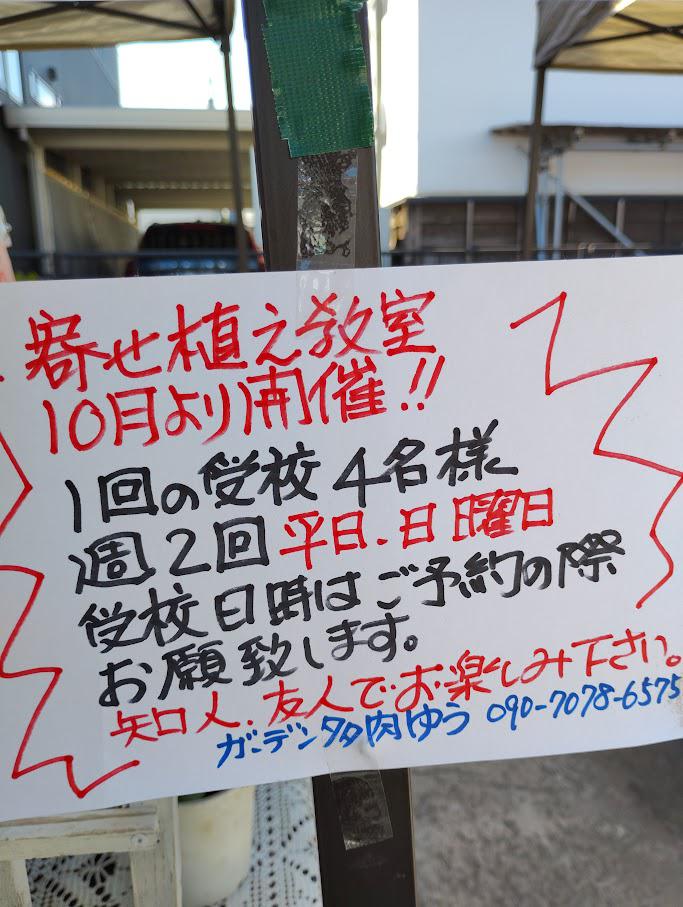 寄せ植え教室
10月より開催!!
1回の受校4名様
週2回平日.日曜日
受校日時はご予約の際
お願致します。
知人.友人でお楽しみ下さい。
ガーデン多肉ゆう 090-7078-6575